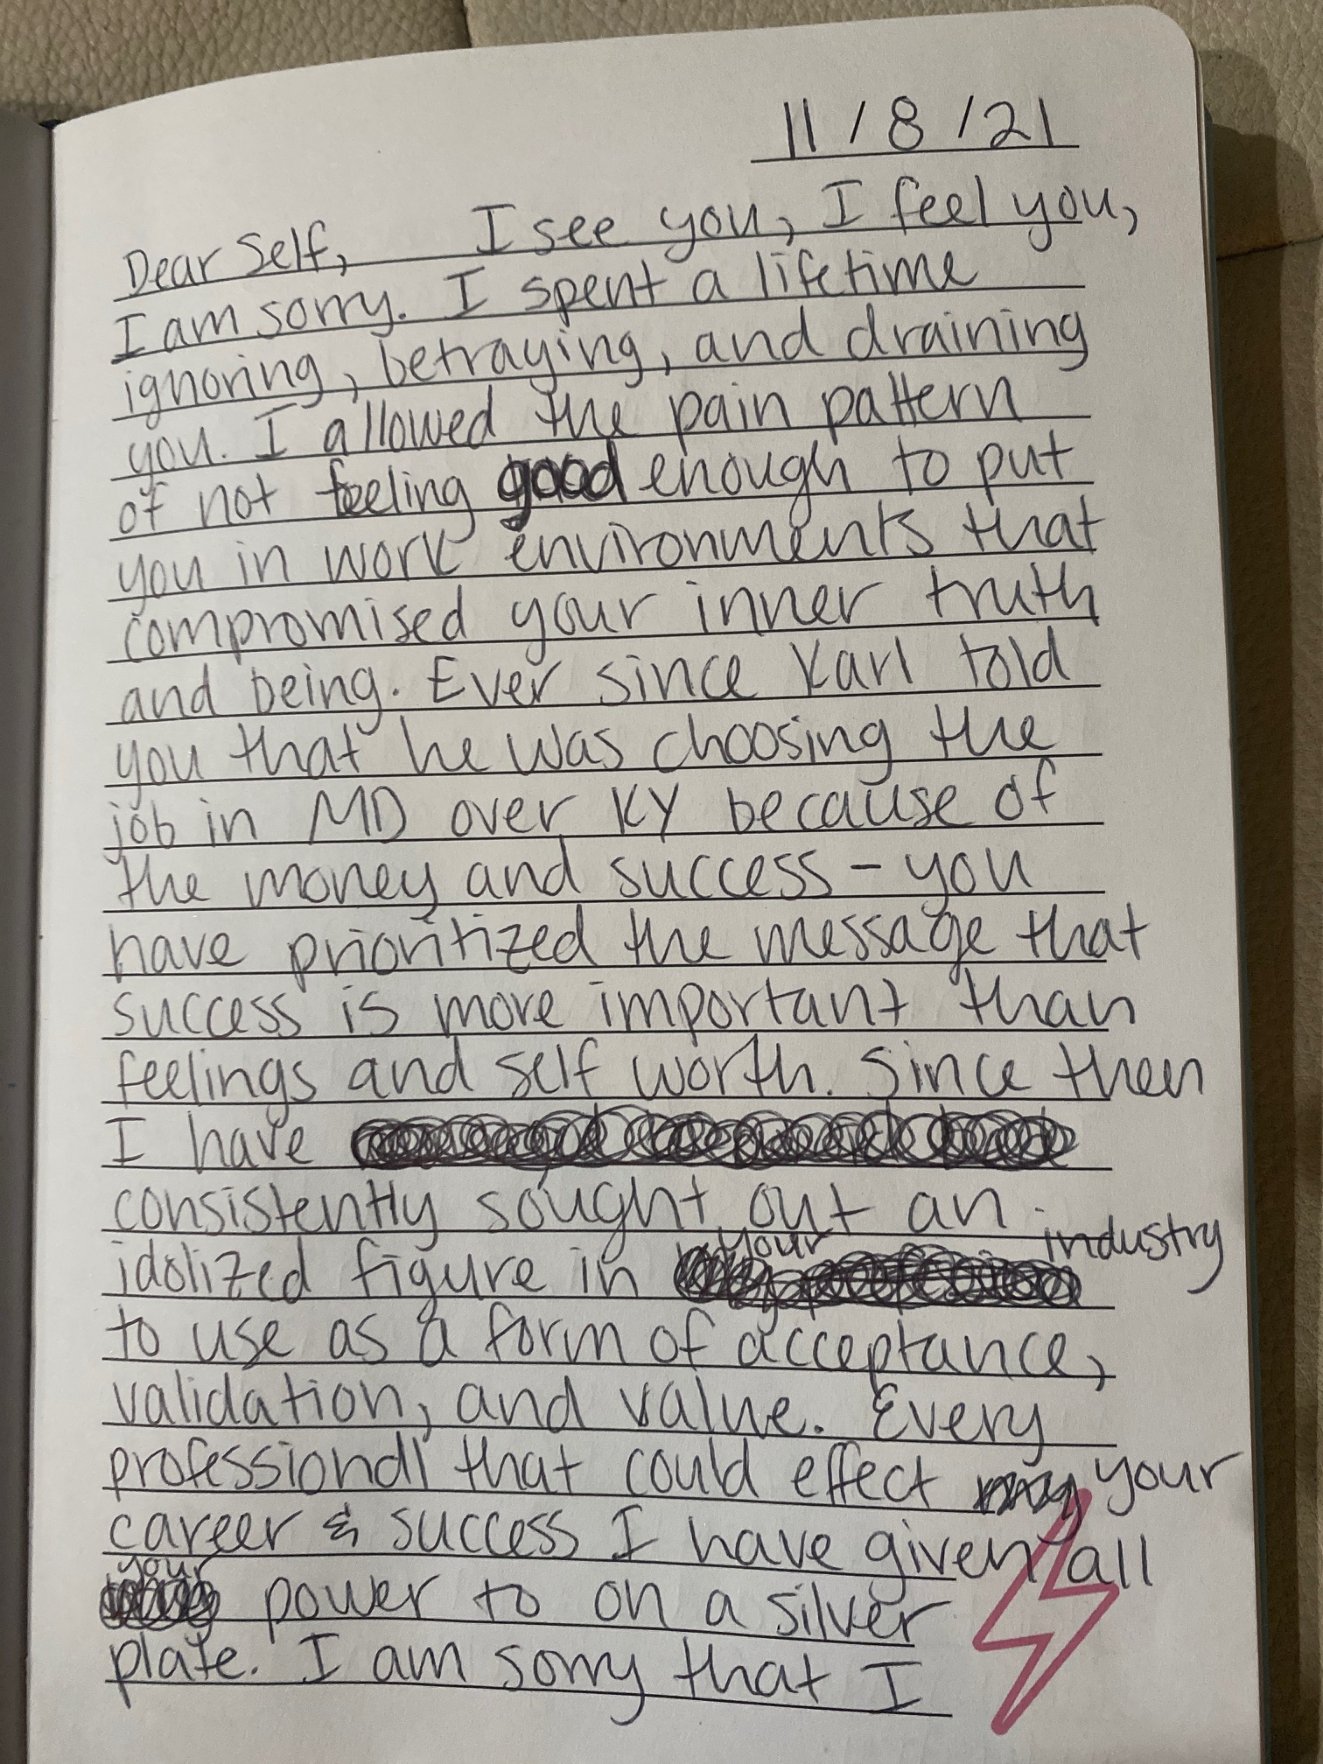 11/8/21
Dear Self, I see you, I feel you,
I am sorry. I spent a lifetime
ignoring, betraying, and draining
you. I allowed the pain pattern
of not feeling good enough to put
you in work environments that
compromised your inner truth
and being. Ever since Karl told
you that he was choosing the
job in MD over KY because of
the money and success - you
have prioritized the message that
success is more important than
feelings and self worth. Since then
I have
consistently sought out an
idolized figure in your industry
to use as a form of acceptance,
validation, and value. Every
professional that could effect your
career & success I have given all
your power to on a silver
plate. I am sorry that I